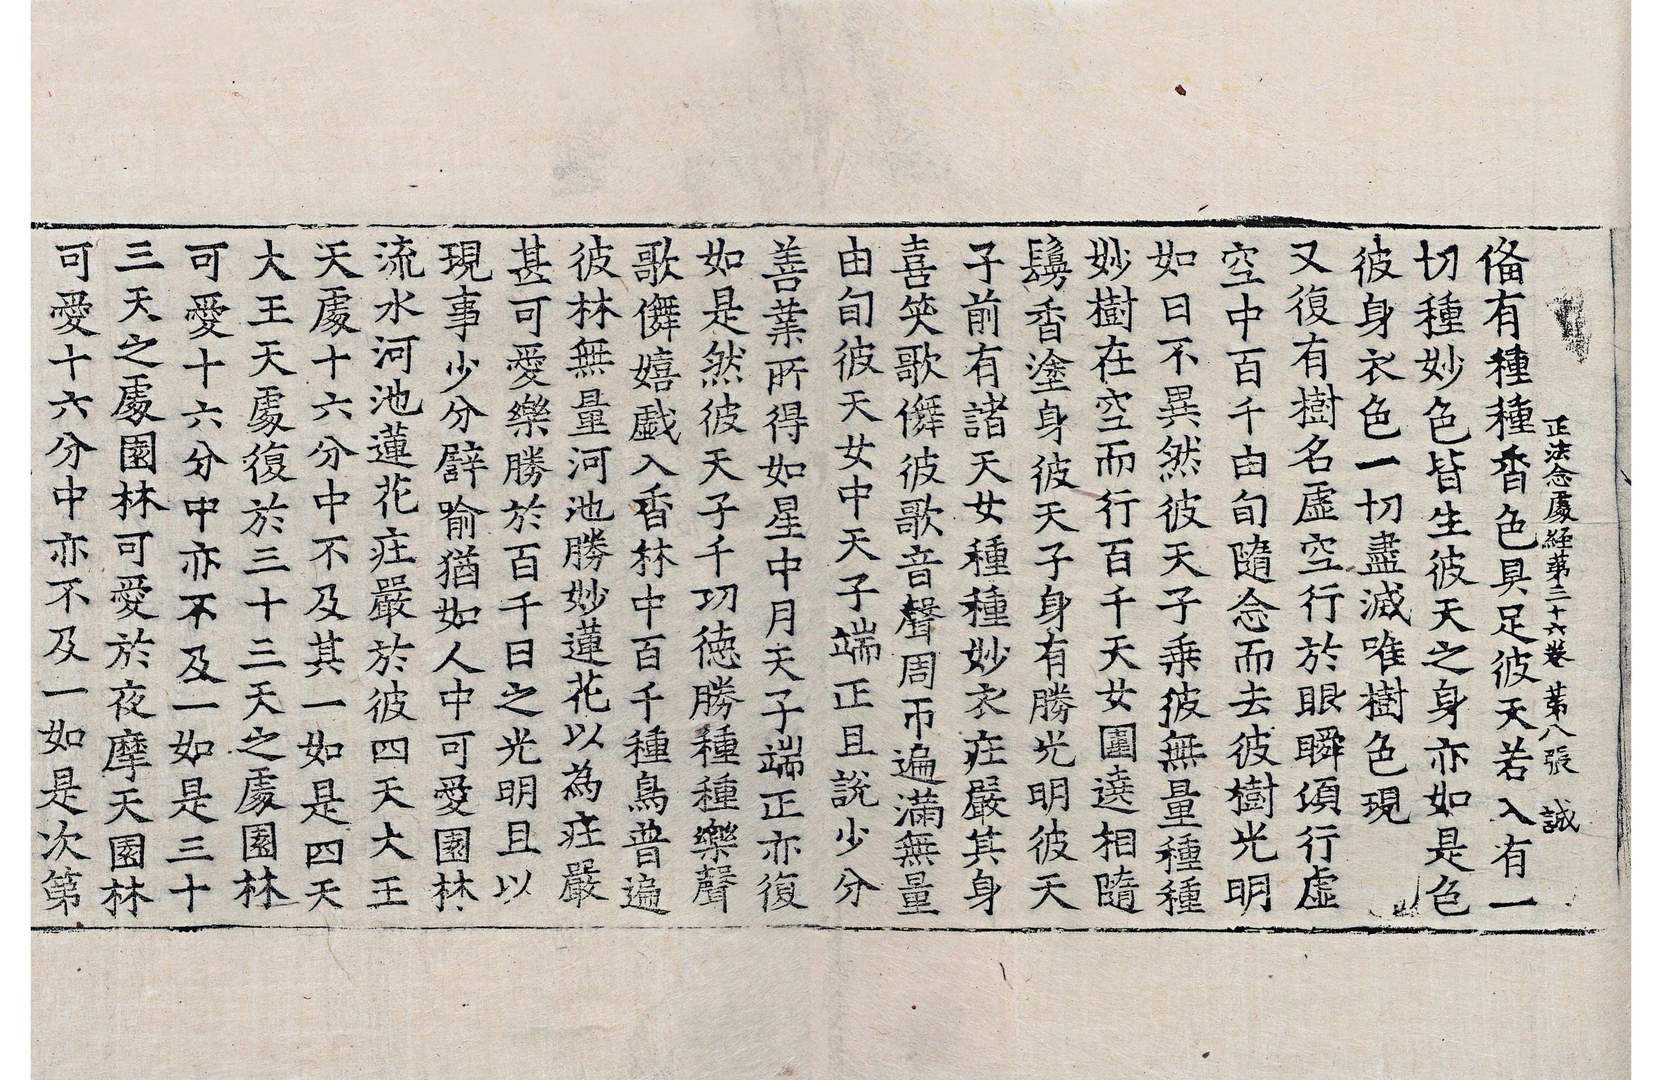 正法念處経苐三十六卷 苐八張 誠
俻有種種香色具足彼天若入有一
切種妙色皆生彼天之身亦如是色
彼身衣色一切盡滅唯樹色現
又復有樹名虛空行於眼瞬湏行虛
空中百千由旬隨念而去彼樹光明
如日不異然彼天子乗彼無量種種
妙樹在空而行百千天女圍遶相隨
鬘香塗身彼天子身有勝光明彼天
子前有諸天女種種妙衣莊嚴其身
喜笑歌儛彼歌音聲周帀遍滿無量
由旬彼天女中天子端正且說少分
善業所得如星中月天子端正亦復
如是然彼天子千功德勝種種樂聲
歌儛嬉戲入香林中百千種鳥普遍
彼林無量河池勝妙蓮花以為莊嚴
甚可愛樂勝於百千日之光明且以
現事少分譬喻猶如人中可愛園林
流水河池蓮花莊嚴於彼四天大王
天處十六分中不及其一如是四天
大王天處復於三十三天之處園林
可愛十六分中亦不及一如是三十
三天之處園林可愛於夜摩天園林
可愛十六分中亦不及一如是次第